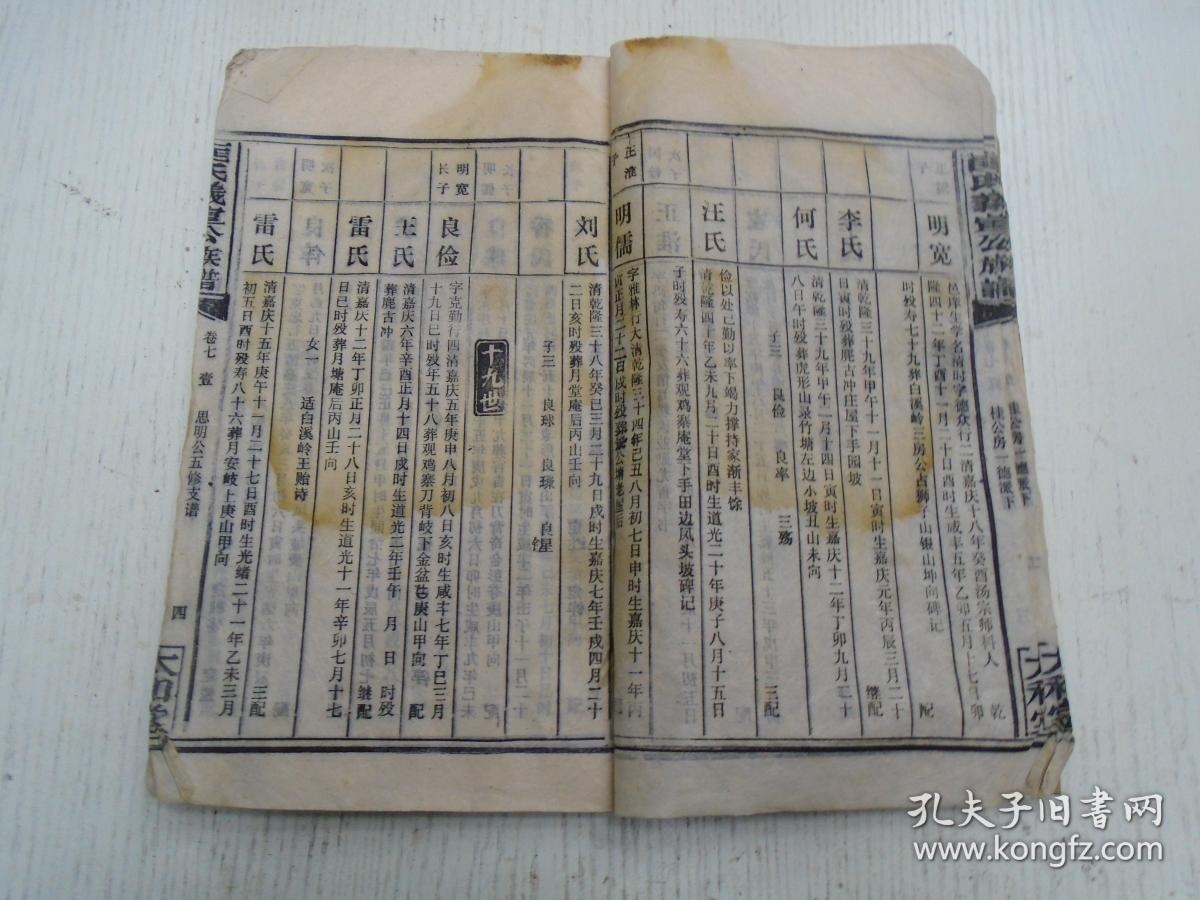 正淮
子
明宽
邑庠生学名南时字德众行二清嘉庆十八年癸酉汤宗师科入 乾
隆四十二年丁酉十一月二十日酉时生咸丰五年乙卯五月十七日卯
时殁寿七十九葬白溪岭三房公占狮子山银山坤向碑记 配
李氏
清乾隆三十九年甲午十一月十一日寅时生嘉庆元年丙辰三月二十
日寅时殁葬麂古冲庄屋下手园坡 继配
何氏
清乾隆三十九年甲午一月十四日寅时生嘉庆十二年丁卯九月二十
八日午时殁葬虎形山录竹塘左边小坡丑山未向
子三 良俭 良率 三殇 三配
汪氏
俭以处己勤以率下竭力撑持家渐丰馀
清乾隆四十年乙未九月二十日酉时生道光二十年庚子八月十五日
子时殁寿六十六葬观鸡寨庵堂下手田边凤头坡碑记
正淮
子
明儒
字雅林行大清乾隆三十四年己丑八月初七日申时生嘉庆十一年丙
寅正月二十二日戌时殁葬 公塘老屋后 配
刘氏
清乾隆三十八年癸巳三月二十九日戌时生嘉庆七年壬戌四月二十
二日亥时殁葬月堂庵后丙山壬向
子三 良球 良璟 良锃
十九世
明宽
长子
良俭
字克勤行四清嘉庆五年庚申八月初八日亥时生咸丰七年丁巳三月
十九日巳时殁年五十八葬观鸡寨刀背岐下金盆 庚山甲向 配
王氏
清嘉庆六年辛酉正月十四日戌时生道光二年壬午 月 日 时殁
葬麂古冲 继配
雷氏
清嘉庆十二年丁卯正月二十八日亥时生道光十一年辛卯七月十七
日巳时殁葬月塘庵后丙山壬向
女一 适白溪岭王贻诗 三配
雷氏
清嘉庆十五年庚午十一月二十七日酉时生光绪二十一年乙未三月
初五日酉时殁寿八十六葬月安岐上庚山甲向
氏义宣公族谱
卷七 壹 思明公五修支谱 四
桂公房一德派下
孔夫子旧书网
www.kongfz.com